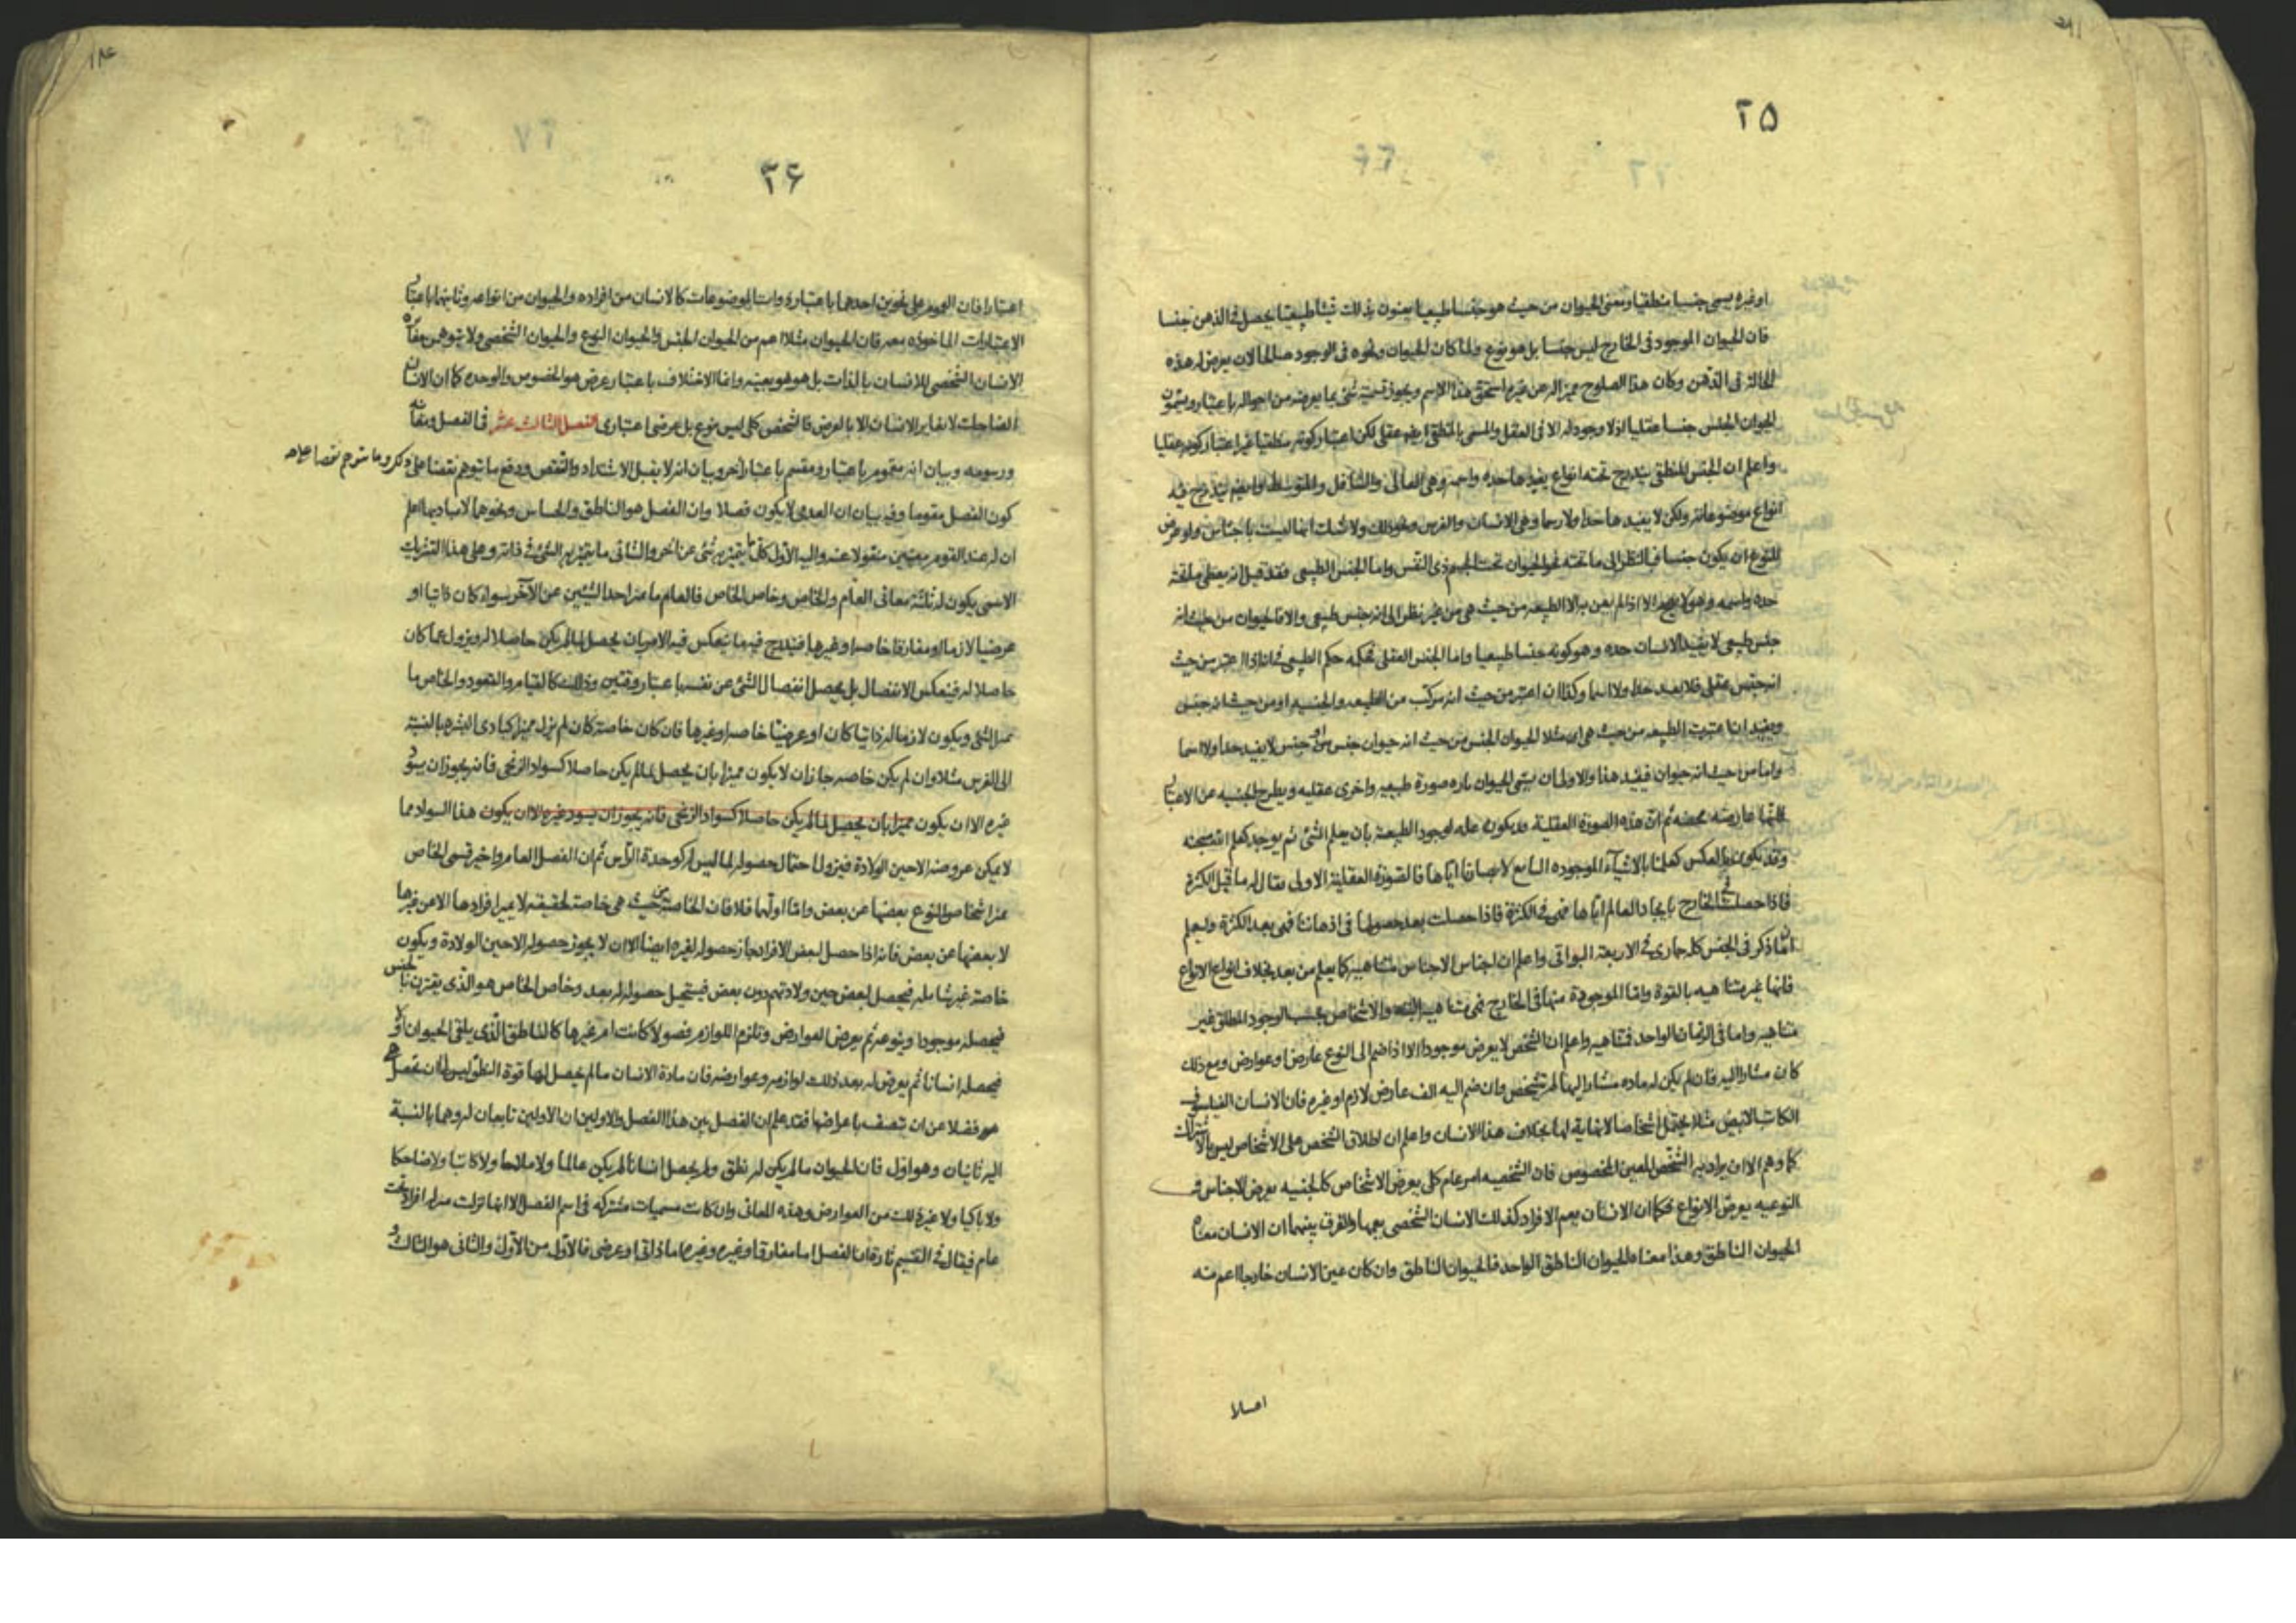 ٢٥
او غيره يسمى جنسا منطقيا ومعنى الحيوان من حيث هو جنسا طبيعيا يعنون بذلك شيئا طبيعيا يحصل فى الذهن جنسا
فان الحيوان الموجود فى الخارج ليس جنسا بل هو نوع ولما كان الحيوان ونحوه فى الوجود صالحا لان يعرض له هذه
الحالة فى الذهن وكان هذا الصلوح مميزا له عن غيره استحق هذا الاسم ويجوز تسمية شئ بما يعرضه من احواله باعتبار ويسمون
الحيوان الجنس جنسا عقليا اذ لا وجود له الا فى العقل والمسمى بالمنطقى ايضا عقلى لكن اعتبار كونه منطقيا غير اعتبار كونه عقليا
واعلم ان الجنس المنطقى يندرج تحته انواع يفيدها حده واسمه وهى العالى والسافل والمتوسط وايضا يندرج فيه
انواع موضوعاته ولكن لا يفيدها حدا ولا رسما وهى الانسان والفرس ونحو ذلك ولا شك انها ليست باجناس ولو عرض
للنوع ان يكون جنسا فبالنظر الى ما تحته نحو الحيوان تحت الجسم ذى النفس واما الجنس الطبيعى فقد قيل انه يعطى ما تحته
حده واسمه وهو لا يصح الا اذا لم يعن به الا الطبيعه من حيث هى من غير نظر الى انه جنس طبيعى والا فالحيوان من حيث انه
جنس طبيعى لا يفيد الانسان حده وهو كونه جنسا طبيعيا واما الجنس العقلى فحكمه حكم الطبيعى فى انه اذا اعتبر من حيث
انه جنس عقلى فلا يفيد حدا ولا اسما وكذا ان اعتبر من حيث انه مركب من الطبيعه والجنسيه او من حيث انه جنس
ويفيد ان اعتبرت الطبيعه من حيث هى اى مثلا الحيوان الجنس من حيث انه حيوان جنس او جنس لا يفيد حدا ولا اسما
واما من حيث انه حيوان فيفيد هذا والاولى ان يسمى الحيوان تاره صورة طبيعيه واخرى عقليه ويطرح الجنسيه عن الاعتبار
فانها عارضه محضه ثم ان هذه الصورة العقلية قد يكون علة لوجود الطبيعة بان يعلم الشئ ثم يوجد كعلم الله سبحنه
وقد يكون بالعكس كعلمنا بالاشيآء الموجوده التابع لابصارنا اياها فالصورة العقلية الاولى يقال لها ما قبل الكثرة
فاذا حصلت فى الخارج بايجاد العالم اياها فهى فى الكثرة فاذا حصلت بعد حصولها فى اذهاننا فهى بعد الكثرة وليعلم
ان ما ذكر فى الجنس كله جارى فى الاربعة البواقى واعلم ان اجناس الاجناس متناهيه كما يعلم من بعد بخلاف انواع الانواع
فانها غير متناهيه بالقوة واما الموجودة منها فى الخارج فمتناهيه والاشخاص بحسب الوجود المطلق غير
متناهيه واما فى الزمان الواحد فمتناهيه واعلم ان الشخص لا يعرض موجودا الا اذا ضم الى النوع عارض او عوارض ومع ذلك
كان مشارا اليه فان لم يكن له ماده مشار اليها لم يتشخص وان ضم اليه الف عارض لازم او غيره فان الانسان الفيلسوف
الكاتب الابيض مثلا يحتمل اشخاصا لا نهاية لها بخلاف هذا الانسان واعلم ان اطلاق الشخص على الاشخاص ليس بالاشتراك
كما وهم الا ان يراد به الشخص المعين المخصوص فان الشخصيه امر عام كلى يعرض الاشخاص كالجنسيه يعرض الاجناس و
النوعيه يعرض الانواع فكما ان الانسان يعم الافراد كذلك الانسان الشخصى يعمها والفرق بينهما ان الانسان معناه
الحيوان الناطق وهذا معناه الحيوان الناطق الواحد فالحيوان الناطق وان كان عين الانسان خارجا اعم منه
٢۶
اعتبارا فان العموم على نحوين احدهما باعتباره واستا الموضوعات كالانسان من افراده والحيوان من انواعه وثانيهما باعتبار
الاعتبارات الماخوذه معه فان الحيوان مثلا اعم من الحيوان الجنس والحيوان النوع والحيوان الشخصى ولا يتوهمن مغايرة
الانسان الشخصى للانسان بالذات بل هو هو بعينه وانما الاختلاف باعتبار عرض هو الخصوص والوحده كما ان الانسان
الضاحك لا يغاير الانسان الا بالعرض فالشخص كلى ليس بنوع بل عرضى اعتبارى الفصل الثالث عشر فى الفصل ومعانيه
ورسومه وبيان انه مقوم باعتبار ومقسم باعتبار اخر وبيان انه لا يقبل الاشتداد والتنقص ودفع ما يتوهم نقضا على ذكر وما يتوهم نقضا على
كون الفصل مقوما وفيه بيان ان العدمى لا يكون فصلا وان الفصل هو الناطق والحساس ونحوهما لا مباديها اعلم
ان له عند القوم معنيين منقولا عنه واليه الاول كلى ما يتميز به شئ عن اخر والثانى ما يتميز به الشئ فى ذاته وعلى هذا التشريك
الاسمى يكون له ثلثة معانى العام والخاص وخاص الخاص فالعام ما ميز احد الشيئين عن الآخر سواء كان ذاتيا او
عرضيا لازما او مفارقا خاصه او غيرها فيندرج فيه ما ينعكس فيه الامران يحصل لما لم يكن حاصلا له ويزول عما كان
حاصلا له فينعكس الانفصال بل يحصل انفصال الشئ عن نفسه باعتبار وقتين وذلك كالقيام والقعود والخاص ما
ميز الشئ ويكون لازما له ذاتيا كان او عرضيا خاصه او غيرها فان كان خاصة كان لم يزل مميزا كبادى البشره بالنسبة
الى الفرس مثلا وان لم يكن خاصه جاز ان لا يكون مميزا بان يحصل لما لم يكن حاصلا كسواد الزنجى فانه يجوز ان يسود
غيره الا ان يكون مميزا بان يحصل لما لم يكن حاصلا كسواد الزنجى فانه يجوز ان يسود غيره الا ان يكون هذا السواد مما
لا يمكن عروضه الا حين الولادة فيزول احتمال حصوله لما ليس له كوحدة الرأس ثم ان الفصل العام واخير قسمى الخاص
ميزا اشخاص النوع بعضها عن بعض واما اولهما فلا فان الخاصة من حيث هى خاصة لحقيقة لا يميز افرادها الا عن غيرها
لا بعضها عن بعض فانه اذا حصل لبعض الافراد جاز حصوله لغيره ايضا الا ان لا يجوز حصوله الا حين الولادة ويكون
خاصة غير شامله فيحصل لبعض حين ولادتهم دون بعض فيستحيل حصوله له بعد وخاص الخاص هو الذى يقترن بالجنس
فيحصله موجودا وينوعه ثم يعرض العوارض وتلزم اللوازم فصولا كانت ام غيرها كالناطق الذى يلقى الحيوان اولا
فيحصله انسانا ثم يعرض له بعد ذلك لوازمه وعوارضه فان مادة الانسان ما لم يحصل لها قوة النطق ليس لها ان تحصل
فضلا عن ان تتصف باعراضها فقد علم ان الفصل بين هذا الفصل والاولين ان الاولين تابعان له وهما بالنسبة
اليه ثانيان وهو اول فان الحيوان ما لم يكن له نطق ولم يحصل انسانا لم يكن عالما ولا ملاحا ولا كاتبا ولا ضاحكا
ولا باكيا ولا غير ذلك من العوارض وهذه المعانى وان كانت مسميات مشتركه فى اسم الفصل الا انها نزلت منزله افراد تحت
عام فيقال فى التقسيم تارة ان الفصل اما مفارق او غيره وغيره اما ذاتى او عرضى فالاول من الاول والثانى هو الثالث و